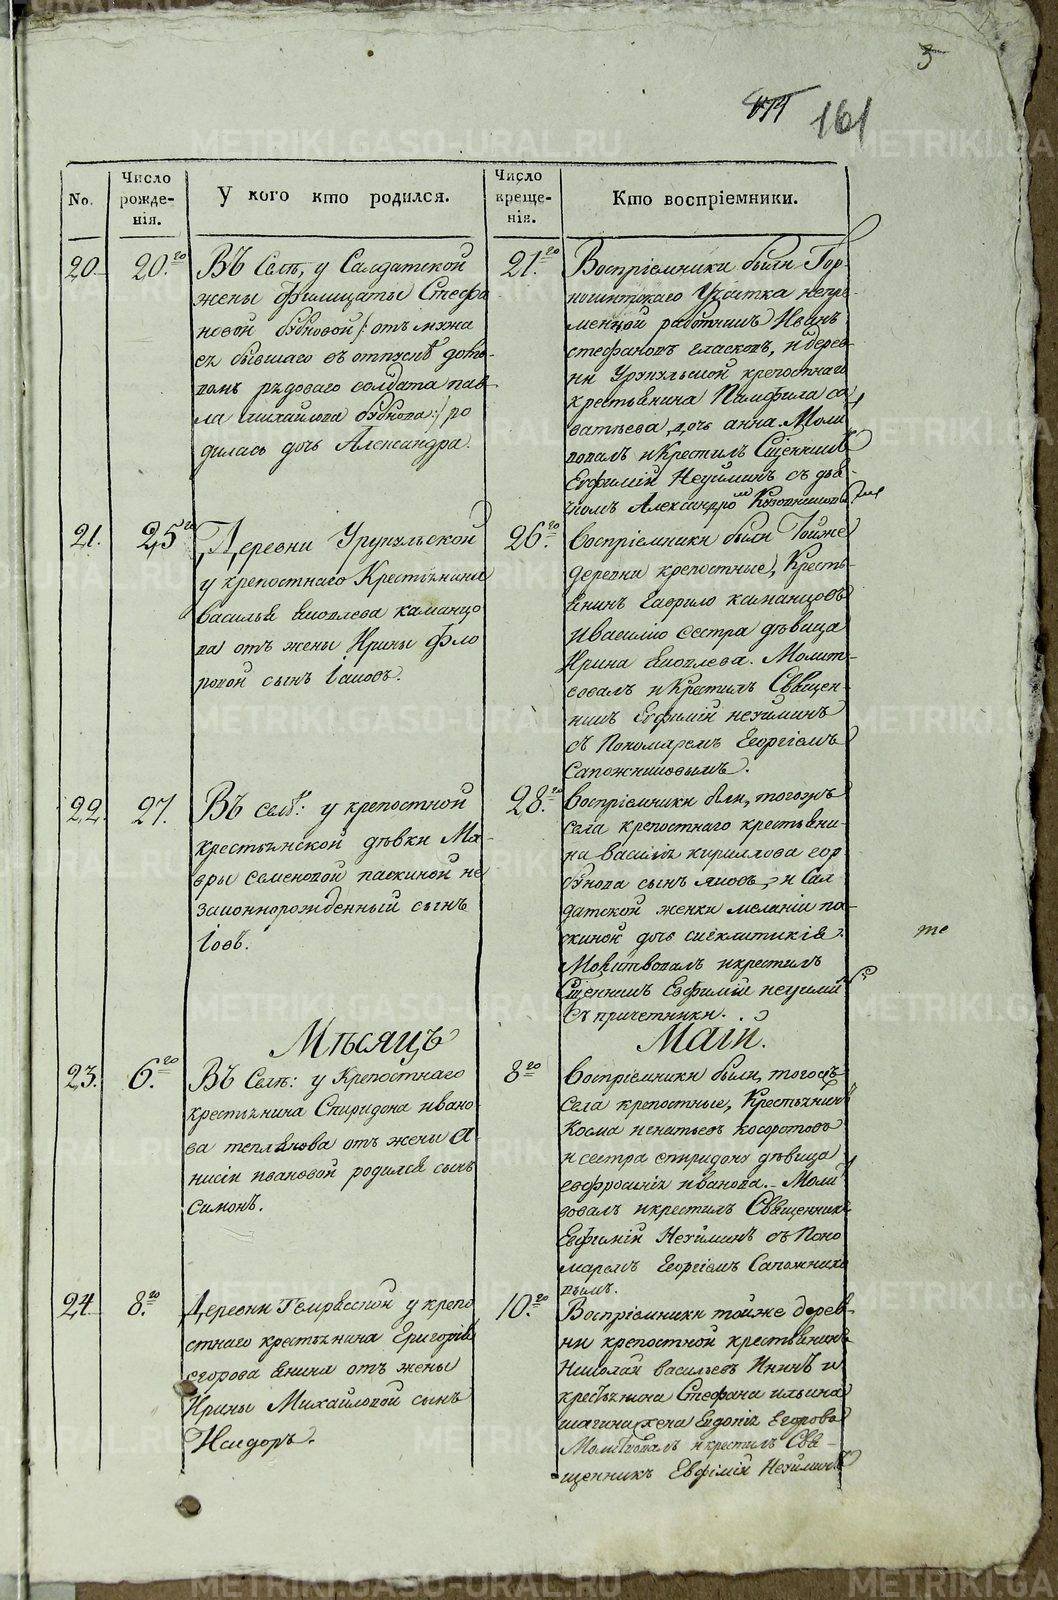 3
161
No.
Число рожденія.
У кого кто родился.
Число крещенія.
Кто воспріемники.
20.
20.го
Въ Селѣ, у Салдатской
жены Филицаты Стефа
новой Бубновой /: отъ мужа
ея бывшаго въ отпускѣ
домъ рядоваго солдата пав
ла михайлова бубнова :/ ро
дилась дочь Александра.
21.го
Воспріемники были Гор
нощитскаго Участка непре
менной работникъ Иванъ
стефановъ гласковъ, и дерев
ни Урукульской крепостнаго
крестьянина Памфила са
ватьева дочь анна. Моли
вовалъ и Крестилъ Сщенникъ
Евфимій Неуйминъ съ дья
чкомъ Александромъ
21.
25.го
Деревни Урукульской
у крепостнаго Крестьянина
василья яковлева каманцо
ва отъ жены Ирины Фло
ровой сынъ Іаковъ.
26.го
Воспріемники были Тойже
деревни крепостные, Кресть
янинъ Гаврило каманцовъ
и василію сестра дѣвица
Ирина яковлева. Молит
вовалъ и Крестилъ Священ
никъ Евфимій неуйминъ
съ Пономаремъ Георгіемъ
Сапожниковымъ.
22.
27.
Въ селѣ: у крепостной
крестьянской дѣвки Ма
вры семеновой паскиной не
законнорожденный сынъ
Іовъ.
28.го
Воспріемники были, тогожъ
села крепостнаго крестьяни
на василія кириллова гор
бунова сынъ яковъ, и Сал
датской женки меланіи па
скиной дочь сиклитикія.
Молитвовалъ и крестилъ
Сщенникъ Евфимій неуйми
съ причетники.
те
Мѣсяцъ
Маій.
23.
6.го
Въ Селѣ: у Крепостнаго
крестьянина Спиридона ивано
ва теплякова отъ жены А
нисіи ивановой родился сынъ
Симонъ.
8го
Воспріемники были, тогожъ
Села крепостные, Крестьянинъ
Косма игнатьевъ косоротовъ
и сестра спиридону дѣвица
евфросинія иванова. Моли
вовалъ и крестилъ Священникъ
Евфимій Неуйминъ съ Поно
маремъ Георгіемъ Сапожнико
вымъ.
24.
8.го
Деревни у крепо
стнаго крестьянина Григорія
егорова янина отъ жены
Ирины Михайловой сынъ
Исидоръ.
10.го
Воспріемники тойже дерев
ни крепостной крестьянинъ
Николай васильевъ Янинъ и
крестьянина Стефана ильина
жена Евдокія Егорова
Молитвовалъ и крестилъ Свя
щенникъ Евфимій Неуйминъ
METRIKI.GASO-URAL.RU